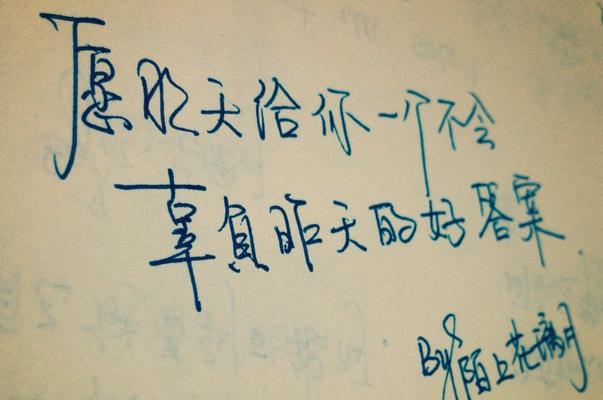 愿明天给你一个不会
辜負昨天的好答案.
By 陌上花满月